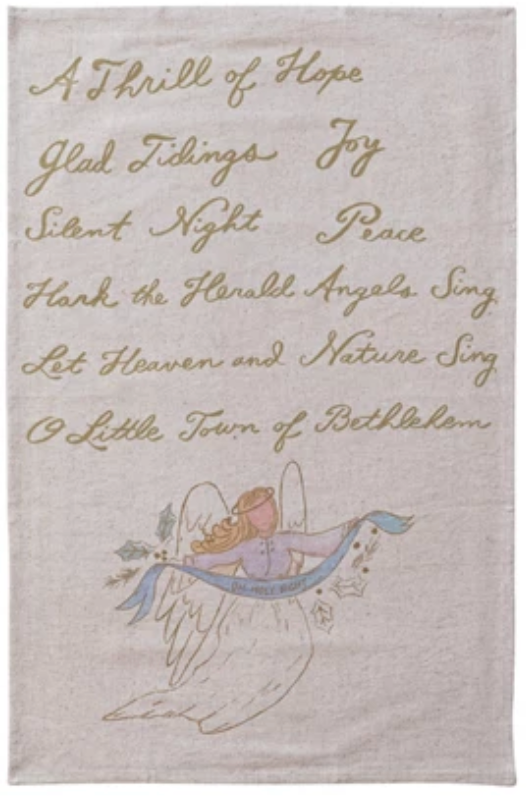 A Thrill of Hope
Glad Tidings Joy
Silent Night Peace
Hark the Herald Angels Sing
Let Heaven and Nature Sing
O Little Town of Bethlehem
OH HOLY NIGHT